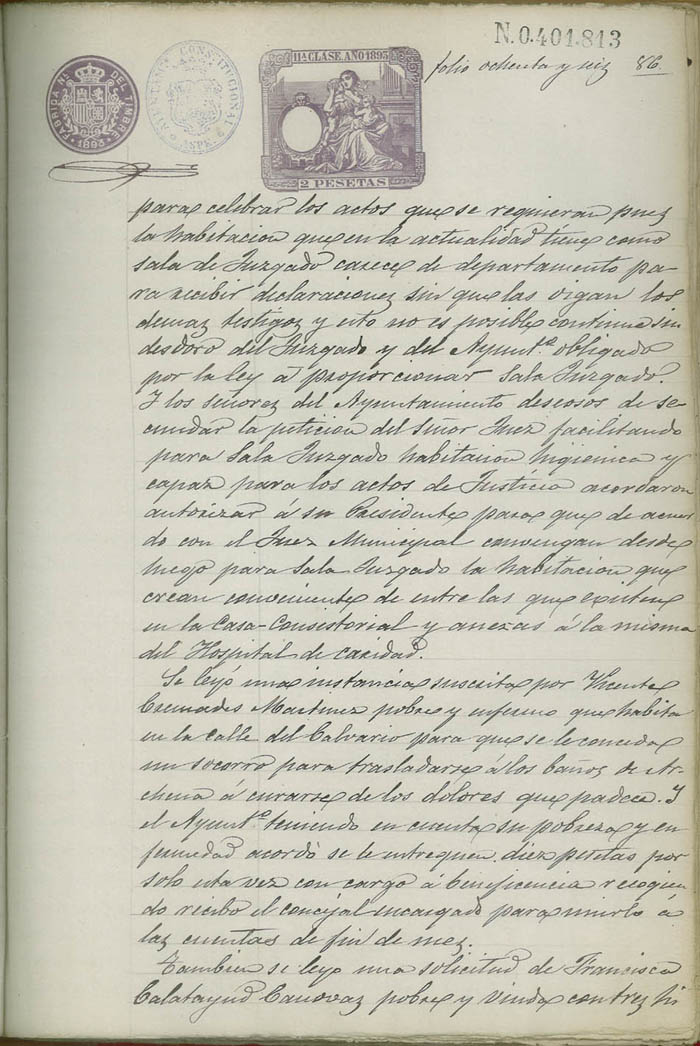 N.0.401.813
folio ochenta y seiz 86.
11ª CLASE. AÑO 1893
FABRICA Nª DEL TIMBRE
1893
AYUNTAMTO CONSTITUCIONAL
ASPE.
2 PESETAS
para celebrar los actos que se requieran puez
la habitacion que en la actualidad tiene como
sala de Juzgado carece de departamento pa-
ra recibir declaracionez sin que las oigan los
demaz testigoz y esto no es posible continue sin
desdoro del Juzgado y del Ayuntº obligado
por la ley á proporcionar Sala Juzgado.
Y los señorez del Ayuntamiento deseosos de se-
cundar la peticion del Señor Juez facilitando
para Sala Juzgado habitacion higienica y
capaz para los actos de Justicia acordaron
autorizar á su Presidente para que de acuer
do con el Juez Municipal convengan desde
luego para Sala Juzgado la habitacion que
crean conveniente de entre las que existen
en la Casa-Consistorial y anexas á la misma
del Hospital de caridad.
Se leyó una instancia suscrita por Vicente
Cremades Martinez pobre y enfermo que habita
en la calle del Calvario para que se le conceda
un socorro para trasladarse á los bañoz de Ar-
chena á curarse de los dolores que padece. Y
el Ayuntº teniendo en cuenta su pobreza y en
fermedad acordó se le entreguen diez pesetas por
solo esta vez con cargo á beneficencia recogien
do recibo el concejal encargado para unirlo á
laz cuentas de fin de mez.
Tambien se leyo una solicitud de Francisca
Calatayud Canovaz pobre y viuda con trez hi